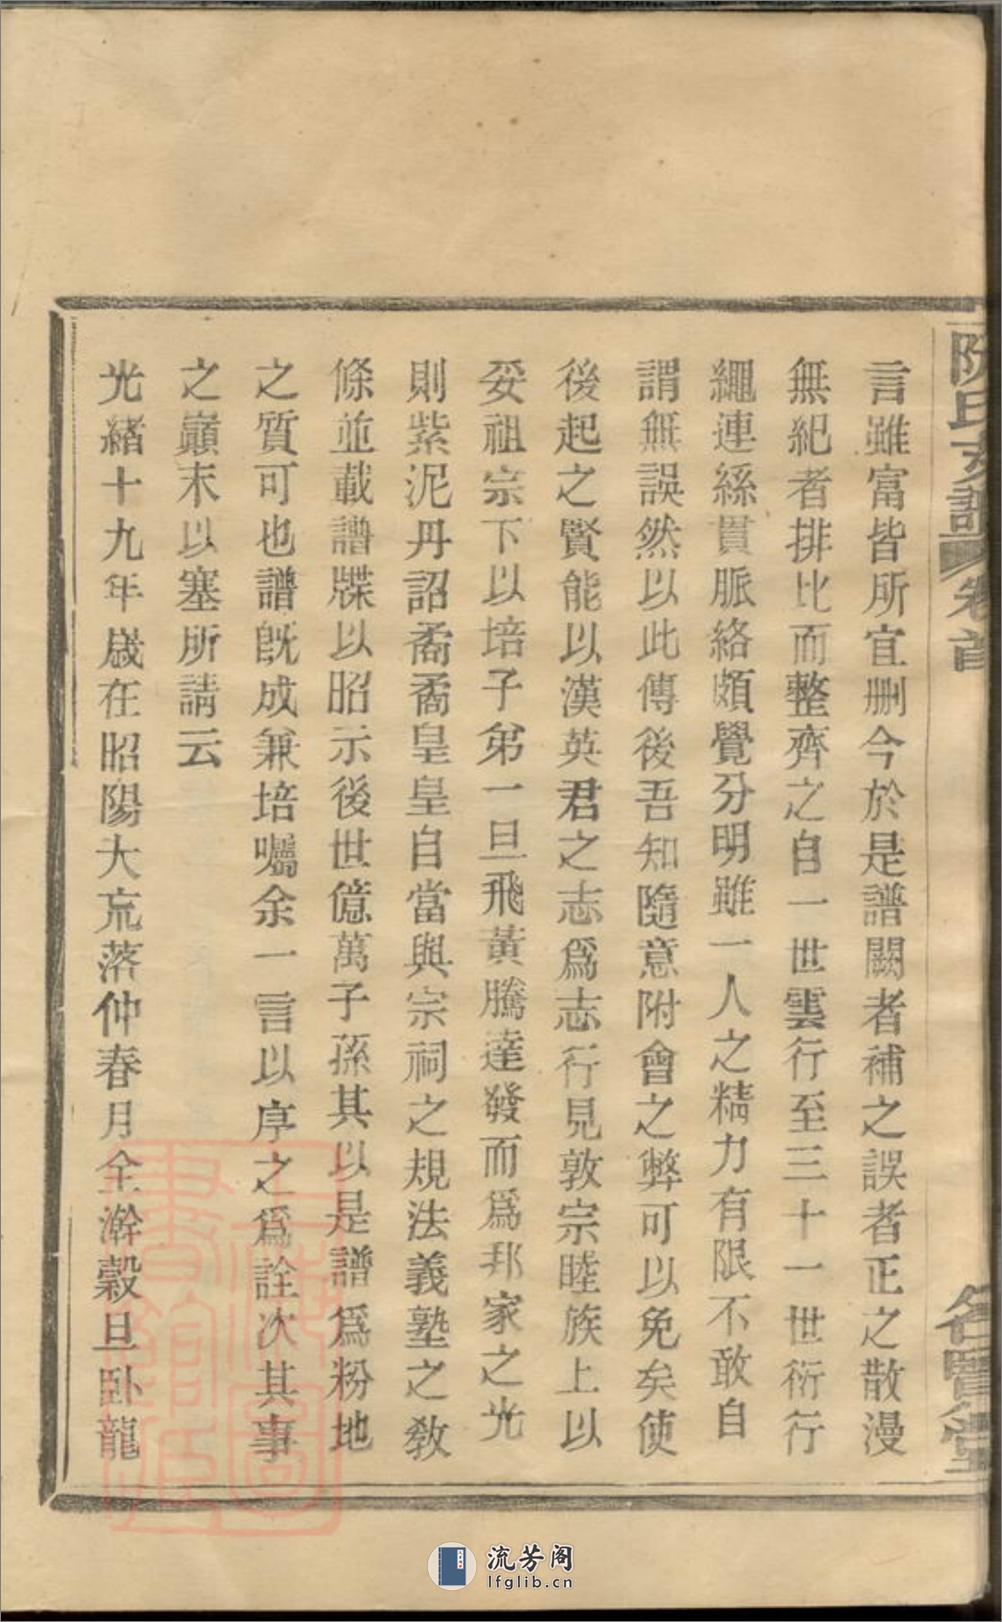 阮氏支譜 卷首 名賢堂
言雖富皆所宜刪今於是譜闕者補之誤者正之散漫
無紀者排比而整齊之自一世雲行至三十一世衍行
繩連絲貫脈絡頗覺分明雖一人之精力有限不敢自
謂無誤然以此傳後吾知隨意附會之弊可以免矣使
後起之賢能以漢英君之志爲志行見敦宗睦族上以
妥祖宗下以培子弟一旦飛黃騰達發而爲邦家之光
則紫泥丹詔矞矞皇皇自當與宗祠之規法義塾之敎
條並載譜牒以昭示後世億萬子孫其以是譜爲粉地
之質可也譜旣成兼培囑余一言以序之爲詮次其事
之巓末以塞所請云
光緒十九年歲在昭陽大荒落仲春月全澣穀旦卧龍
流芳阁
lfglib.cn